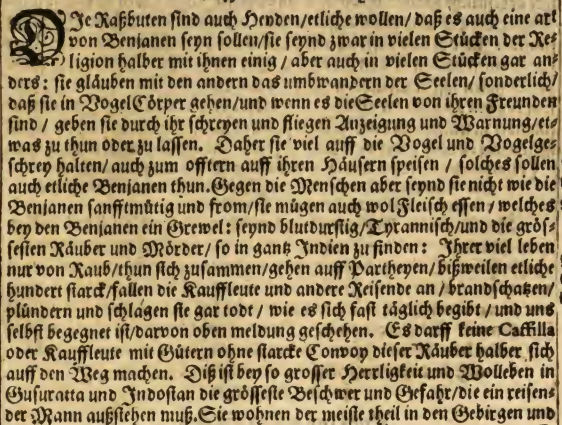 DJe Raßbuten sind auch Heyden/etliche wollen/ daß es auch eine art
von Benjanen seyn sollen/sie seynd zwar in vielen Stücken der Re⸗
ligion halber mit ihnen einig / aber auch in vielen Stücken gar an⸗
ders: sie gläuben mit den andern das umbwandern der Seelen/ sonderlich/
daß sie in Vogel Cörper gehen/und wenn es die Seelen von ihren Freunden
sind / geben sie durch ihr schreyen und fliegen Anzeigung und Warnung/et⸗
was zu thun oder zu lassen. Daher sie viel auff die Vogel und Vogelge⸗
schrey halten/ auch zum offtern auff ihren Häusern speisen / solches sollen
auch etliche Benjanen thun. Gegen die Menschen aber seynd sie nicht wie die
Benjanen sanfftmütig und from/sie mügen auch wol Fleisch essen / welches
bey den Benjanen ein Grewel: seynd blutdurstig/Tyrannisch/und die grös⸗
sesten Räuber und Mörder/ so in gantz Indien zu finden: Ihrer viel leben
nur von Raub/thun sich zusammen/gehen auff Partheyen/ bißweilen etliche
hundert starck/fallen die Kauffleute und andere Reisende an / brandschatzen/
plündern und schlagen sie gar todt / wie es sich fast täglich begibt / und uns
selbst begegnet ist/darvon oben meldung geschehen. Es darff keine Caffilla
oder Kauffleute mit Gütern ohne starcke Convoy dieser Räuber halber sich
auff den Weg machen. Diß ist bey so grosser Herrligkeit und Wolleben in
Gusuratta und Indostan die grösseste Beschwer und Gefahr/die ein reisen⸗
der Mann außstehen muß. Sie wohnen der meiste theil in den Gebirgen und